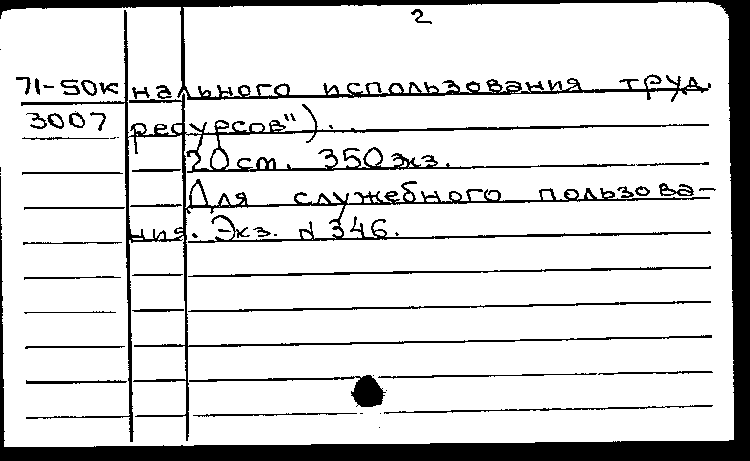 2
71-50к нального использования труд.
3007 ресурсов").
20 ст. 350 экз.
Для служебного пользова-
ния. Экз. № 346.